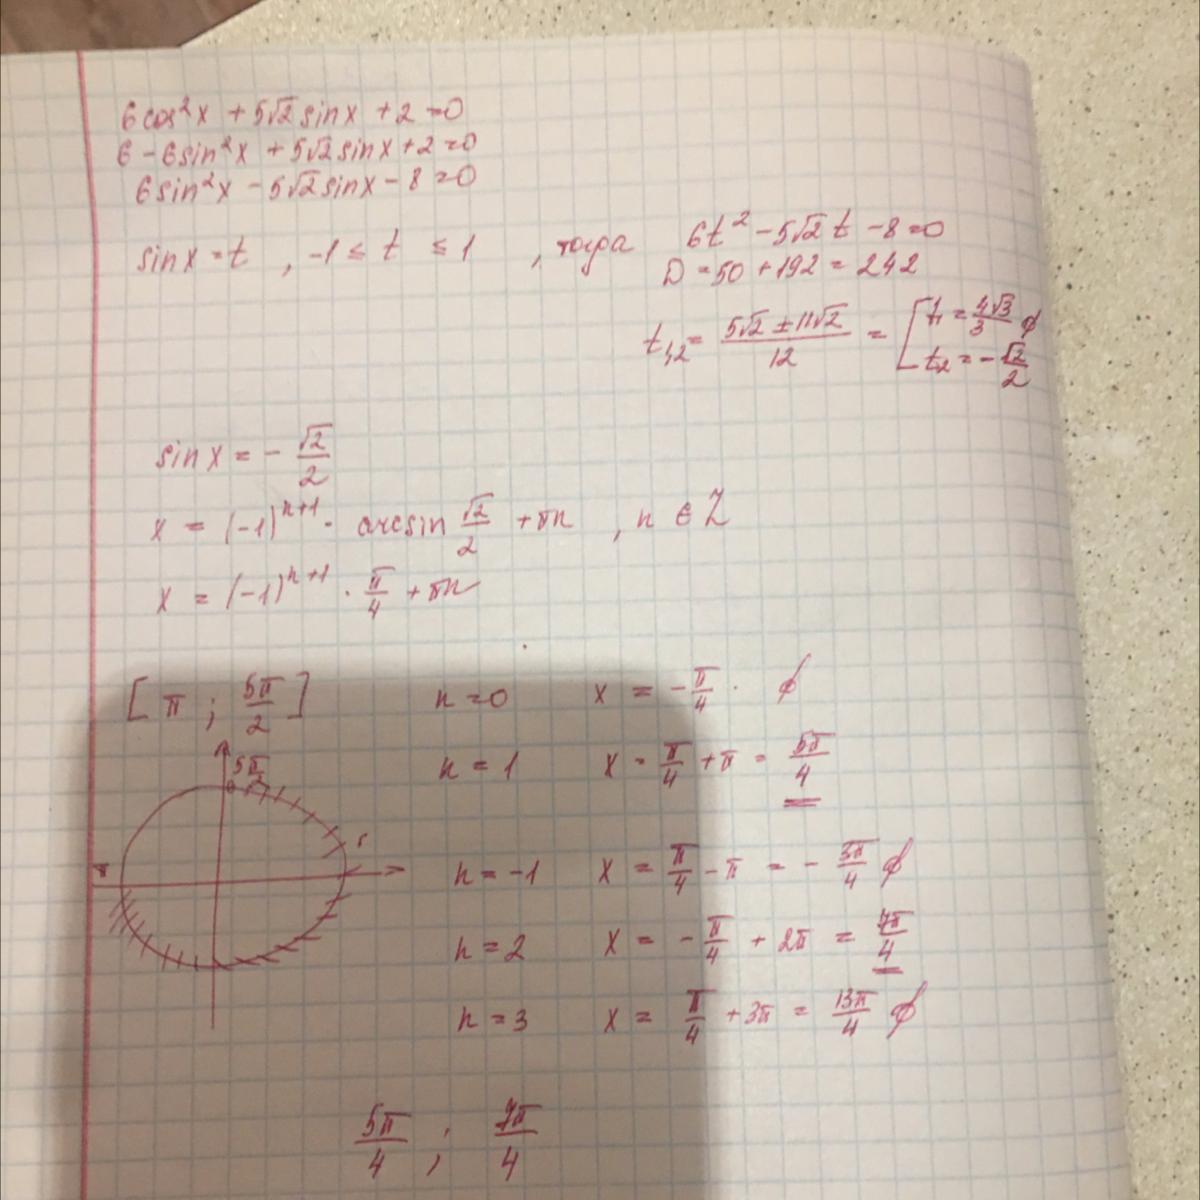 6cos²x + 5√2 sinx + 2 = 0
6 - 6sin²x + 5√2 sinx + 2 = 0
6sin²x - 5√2 sinx - 8 = 0
sinx = t , -1 ≤ t ≤ 1 , тогда 6t² - 5√2 t - 8 = 0
D = 50 + 192 = 242
t₁,₂ = (5√2 ± 11√2)/12 = [ t₁ = 4√3/3 ∅
t₂ = -√2/2
sinx = - √2/2
x = (-1)ⁿ⁺¹ · arcsin √2/2 + πn , n ∈ Z
x = (-1)ⁿ⁺¹ · π/4 + πn
[π ; 5π/2]
n = 0 x = -π/4 · ∅
5π/2
n = 1 x = π/4 + π = 5π/4
π
n = -1 x = π/4 - π = - 3π/4 ∅
n = 2 x = - π/4 + 2π = 7π/4
n = 3 x = π/4 + 3π = 13π/4 ∅
5π/4 ; 7π/4